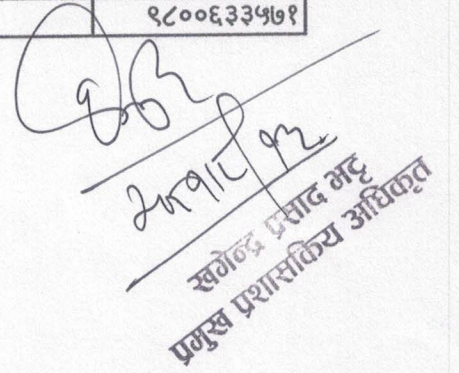 ९८००६३३५७१
खगेन्द्र प्रसाद भट्ट
प्रमुख प्रशासकिय अधिकृत